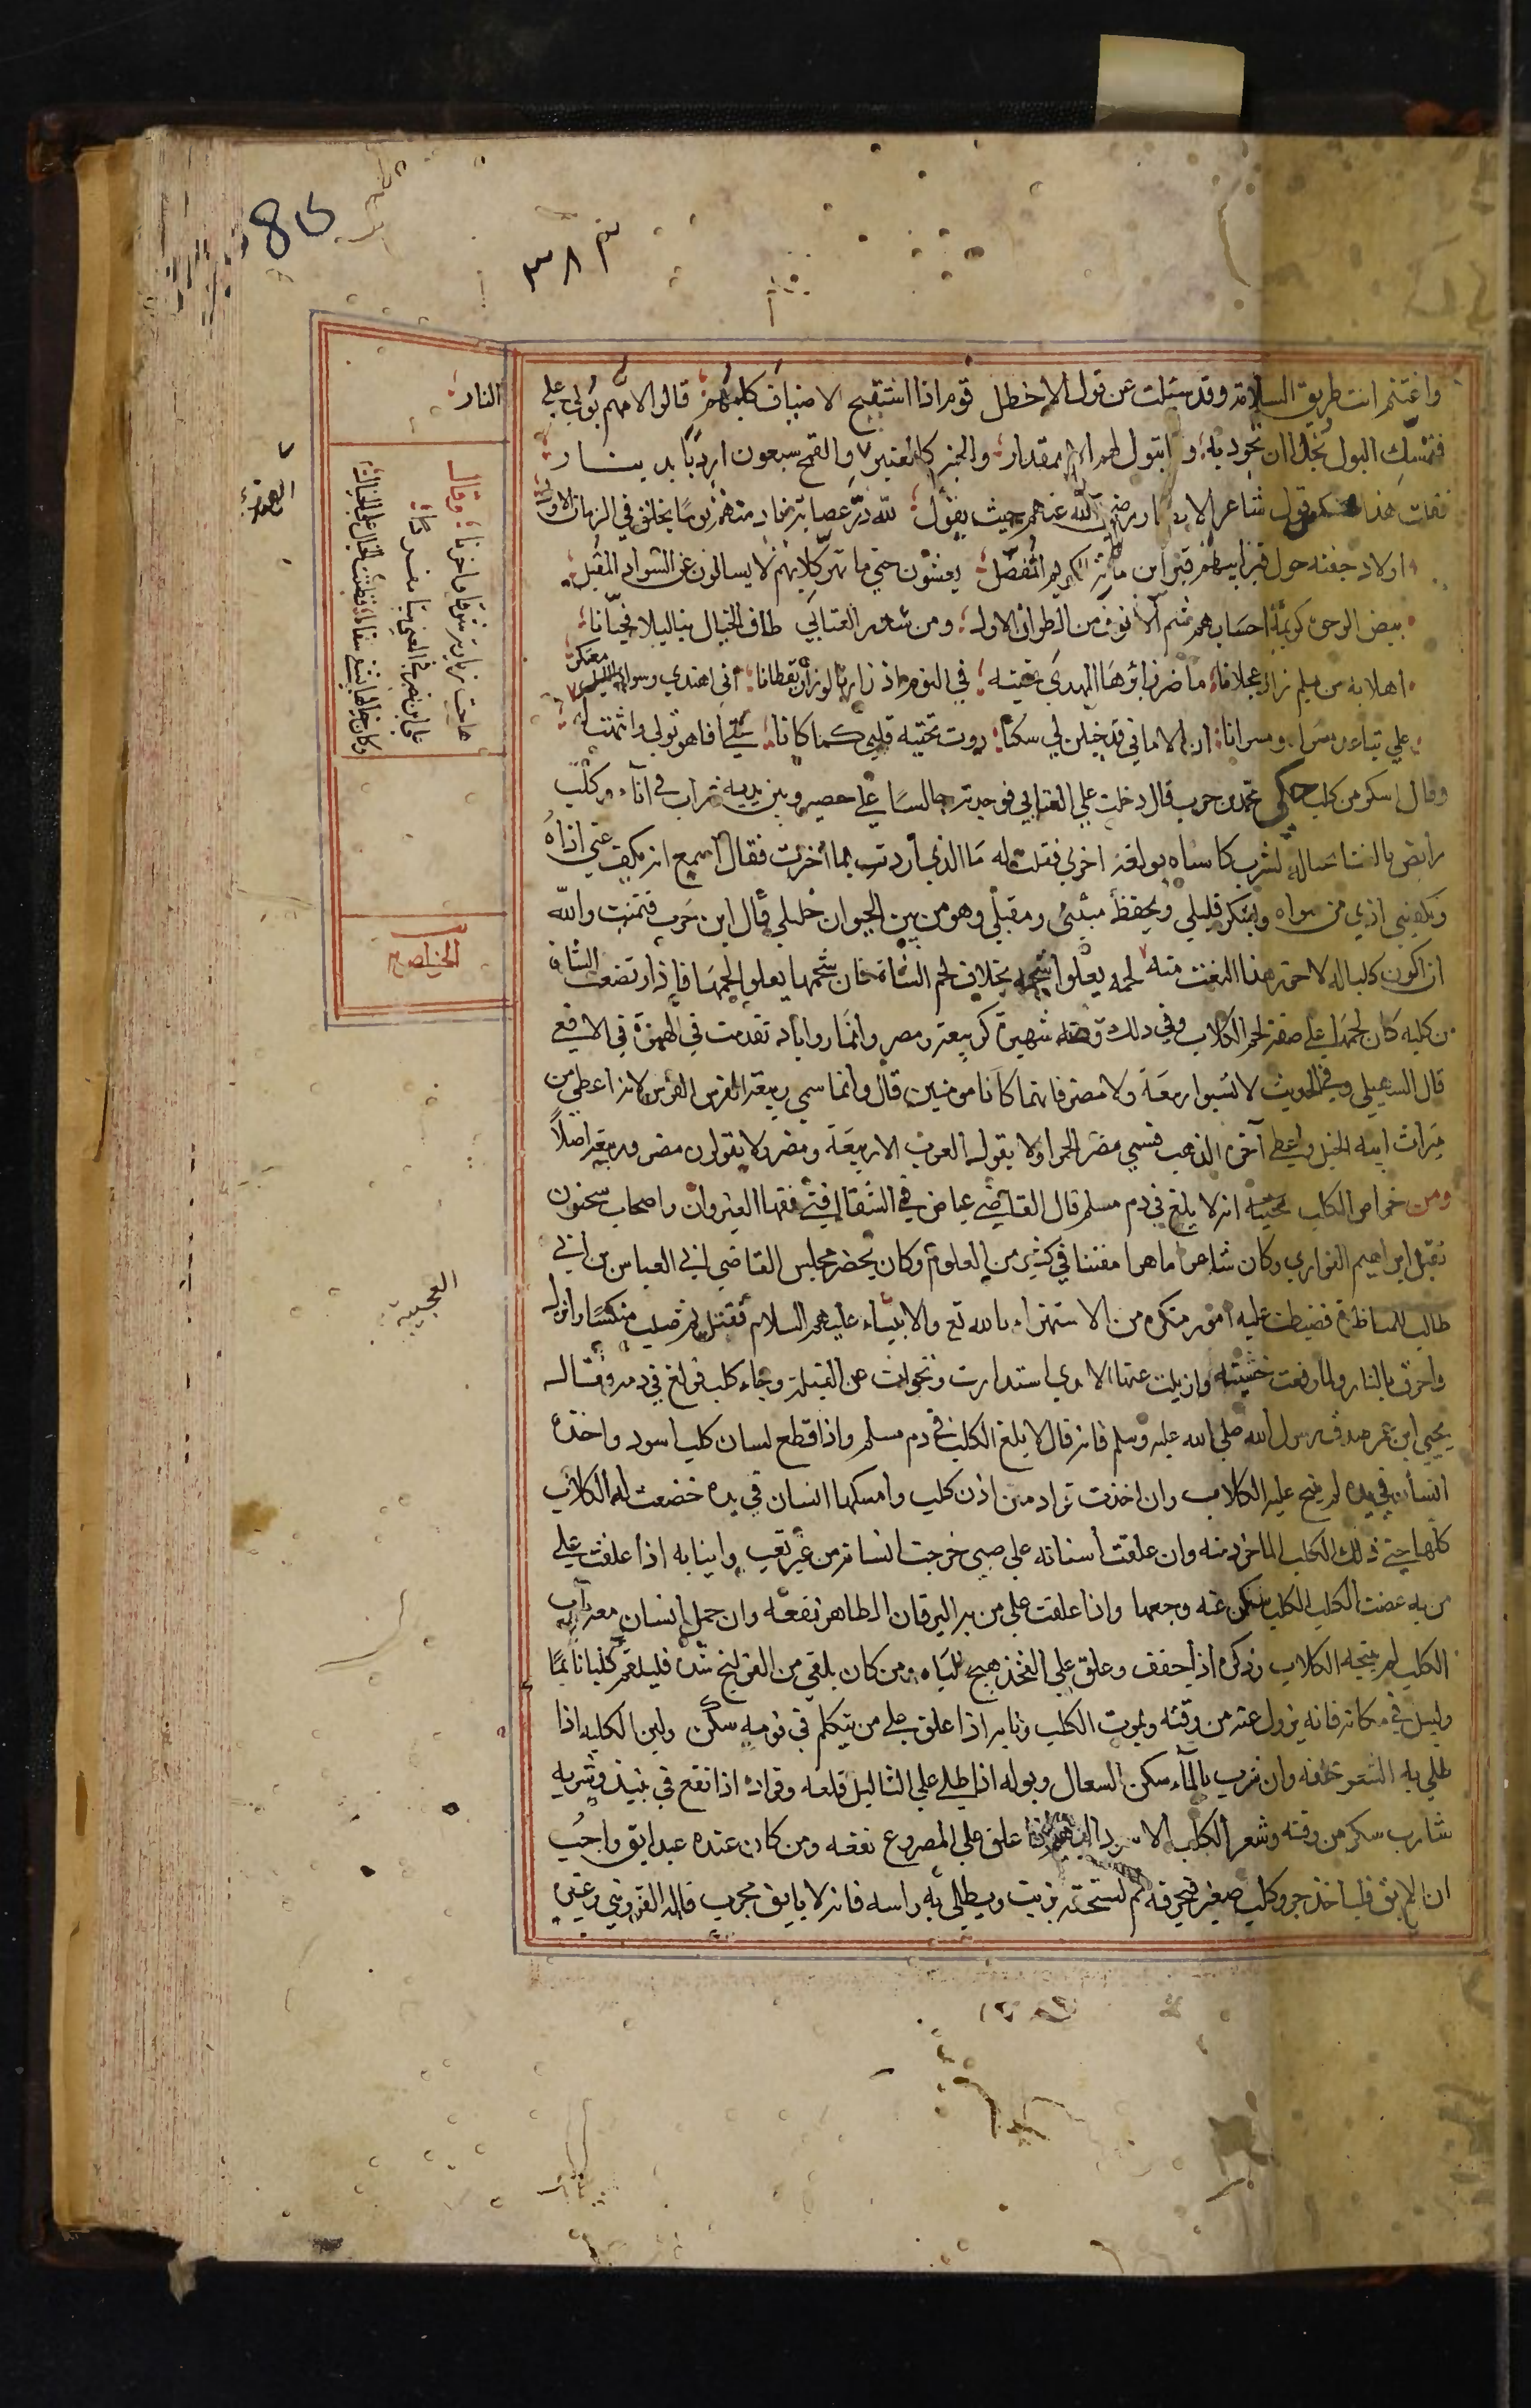 85
٣٨٣
واغتنم انت طريق السلامة وقد سئلت عن قول الاخطل قوم اذا استنبح الاضياف كلبهم قالوا لامهم بولي علي
النار
فتمسك البول بخلا ان تجود به ولا تبول لهم الا بمقدار والخبز كالعنبر والقمح سبعون اردبا بدينار
فقلت هذا قول شاعر الانصار رضي الله عنهم حيث يقول لله در عصابة نادمتهم يوما بجلق في الزمان الاول
اولاد جفنه حول قبر ابيهم قبر ابن مارية الكريم المفضل يغشون حتي ما تهر كلابهم لا يسالون عن السواد المقبل
بيض الوجوه كريمة احسابهم شم الانوف من الطراز الاول ومن شعر العتابي طاف الخيال بنا ليلا فحيانا
اهلا به من ملم زار عجلانا ما ضر زائرنا المهدي تحيته في النوم اذ زارنا لو زار يقظانا اني اهتدي وسواد الليل معتكر
علي تباعد مسراه ومسرانا ان الاماني قد خيلن لي سكنا ردت تحيته قلبي كما كانا
وقال اسكر من كلب حكي محمد بن حرب قال دخلت علي العتابي فوجدته جالسا علي حصير وبين يديه شراب في اناء وكلب
رابض بالفنا حياله يشرب كاسا ويولغه اخري فقلت له ما الذي اردت بما اخترت فقال اسمع انه يكف عني اذاه
ويكفيني اذي من سواه ويشكر قليلي ويحفظ مبيتي ومقيلي وهو من بين الحيوان خليلي قال ابن حرب فتمنيت والله
ان اكون كلبا له لاحوز هذا النعت منه لحمه يعلوا شحمه بخلاف لحم الشاة فان شحمها يعلوا لحمها فاذا رتضعت الشاة
من كلبه كان لحمها علي صفة لحم الكلاب وفي ذلك قصة شهيرة كربيعة ومضر وانمار واياد تقدمت في الهمزة في الافعي
قال السهيلي وفي الحديث لا تسبوا ربيعة ولا مضر فانهما كانا مومنين قال وانما سمي ربيعة الفرس لانه اعطي من
ميراث ابيه الخيل واعطي اخوه الذهب فسمي مضر الحمرا ولا يقول العرب الا ربيعة ومضر ولا يقولون مضر وربيعة اصلا
ومن خواص الكلب العجيبة انه لا يلغ في دم مسلم قال القاضي عياض في الشفا افتي فقها القيروان واصحاب سحنون
بقتل ابراهيم الفزاري وكان شاعرا ماهرا مفننا في كثير من العلوم وكان يحضر مجلس القاضي ابي العباس بن ابي
طالب للمناظرة فضبطت عليه امور منكره من الاستهزاء بالله تع والانبياء عليهم السلام فقتل ثم صلب منكسا وانزل
واحرق بالنار ولما رفعت خشبته وازيلت عنها الايدي استدارت وتحولت عن القبلة وجاء كلب فولغ في دمه فقال
يحيي ابن عمر صدق رسول الله صلي الله عليه وسلم فانه قال لا يلغ الكلب في دم مسلم واذا قطع لسان كلب اسود واخذه
انسان في يده لم ينبح عليه الكلاب وان اخذت قراد من اذن كلب وامسكها انسان في يده خضعت له الكلاب
كلها حتي ذلك الكلب الماخوذ منه وان علقت اسنانه علي صبي خرجت اسنانه من غير تعب وانيابه اذا علقت علي
من به عضت الكلب الكلب سكن عنه وجعها واذا علقت علي من به اليرقان الظاهر نفعه وان حمل انسان معه ناب
الكلب لم ينبحه الكلاب وذكره اذا جفف وعلق علي الفخذ هيج الباه ومن كان يلقي من القولنج شدة فليقم كلبا نائما
وليبل في مكانه فانه يزول عنه من وقته ويموت الكلب ونابه اذا علق علي من يتكلم في نومه سكن ولبن الكلبه اذا
طلي به الشعر حلقه وان شرب بالماء سكن السعال وبوله اذا طلي علي الثاليل قلعه وقراده اذا نقع في نبيذ وشربه
شارب سكر من وقته وشعر الكلب الاسود البهيم اذا علق علي المصروع نفعه ومن كان عنده عبد ابق واحب
ان لا يبق فلياخذ جرو كلب صغير فيحرقه ثم يستحقه بزيت ويطلي به راسه فانه لا يابق مجرب قاله القزويني وغيره
وقال
هاجت زيارته شوقا واحزنا
علي ابن نصر في المعني بيتا مفردا
وكان خيالها يشفي سقاما فضنت بالخيال علي الخيال
الخواص
العجيبة